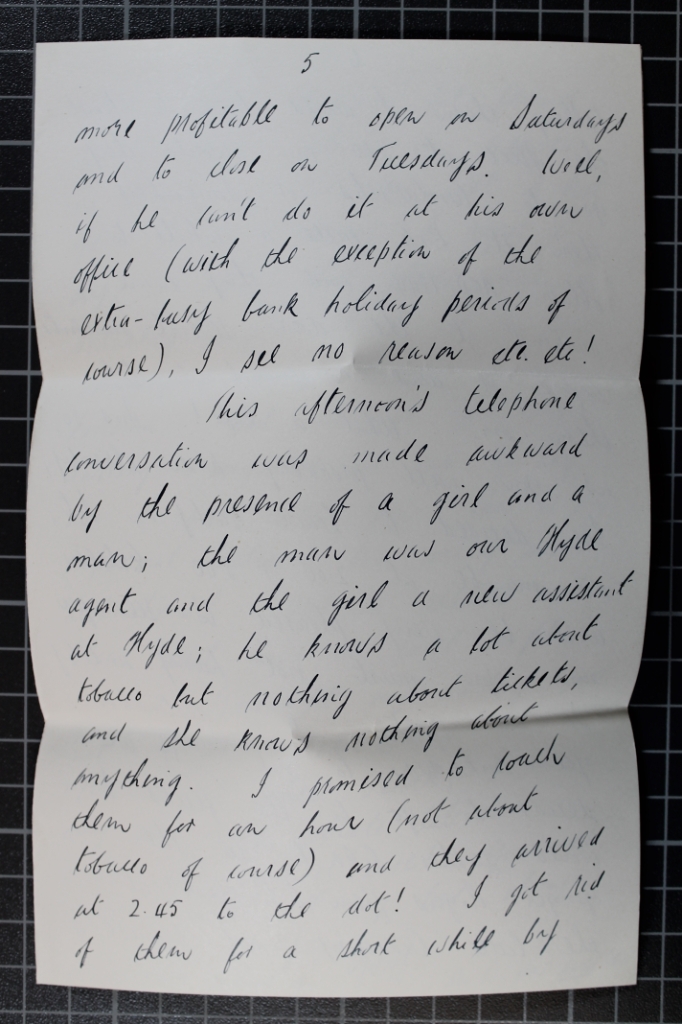 5
more profitable to open on Saturdays
and to close on Tuesdays. Well,
if he can't do it at his own
office (with the exception of the
extra-busy bank holiday periods of
course), I see no reason etc. etc!
This afternoon's telephone
conversation was made awkward
by the presence of a girl and a
man; the man was our Hyde
agent and the girl a new assistant
at Hyde; he knows a lot about
tobacco but nothing about tickets,
and she knows nothing about
anything. I promised to coach
them for an hour (not about
tobacco of course) and they arrived
at 2.45 to the dot! I got rid
of them for a short while by